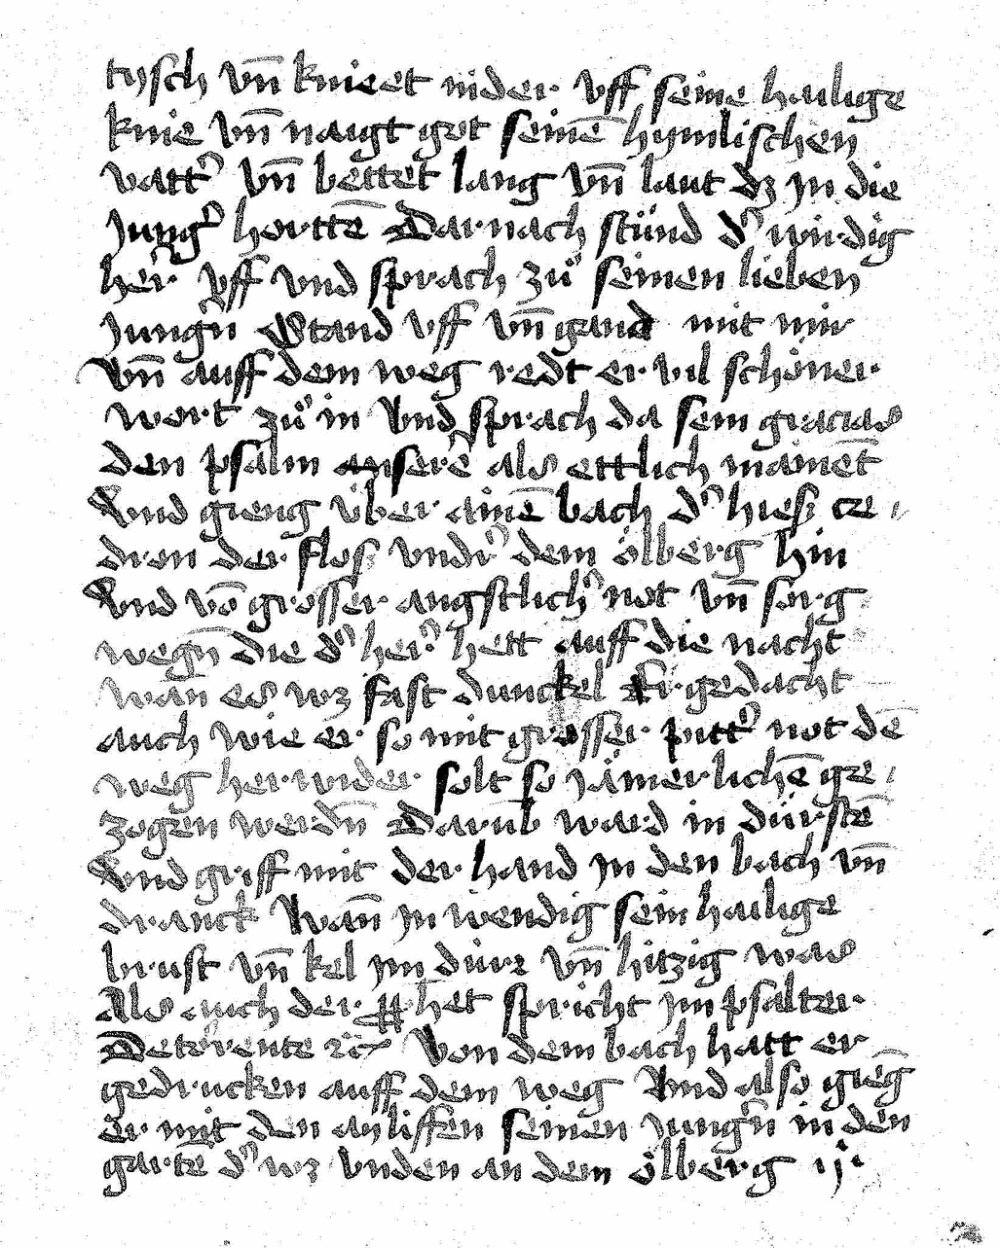 tysch vn̄ knieet nider vff seine hailige
knie vn̄ naigt got seinē hymlischen
vattʾ vn̄ bettet lang vn̄ laut dz jn die
jungʾ horttē Darnach stünd dʾ wirdig
her vff vnd sprach zů seinen lieben
jungʾn Stand vff vn̄ gand mit mir
vn̄ auff dem weg redt er vil schöner
wort zů in Vnd sprach da sein gracias
den psalm ansere als ettlich mainēt
Vnd gieng über ainē bach dʾ hiess ce
dron der floss vndʾ dem ölberg hin
Vnd vō grosser angstlichʾ not vn̄ sorg
wegn̄ die dʾ herʾ hett auff die nacht
wan̄ es wz fast dunckel Er gedacht
auch wie er so mit grosser pittʾ not dē
weg her wider solt so jämerlichē ge
zogen werdn̄ Darūb ward in dürstē
Vnd griff mit der hand jn den bach vn̄
dranck Wan̄ jn wendig sein hailige
brust vn̄ kel jm dürr vn̄ hitzig was
Als auch der het spricht jm psalter
Detorente rc̄ Von dem bach hatt er
gedrucken auff dem weg Vnd also gieḡ
er mit den ayliffen seinen jungʾn in den
gartē dʾ wz vnden an dem ölberg ij